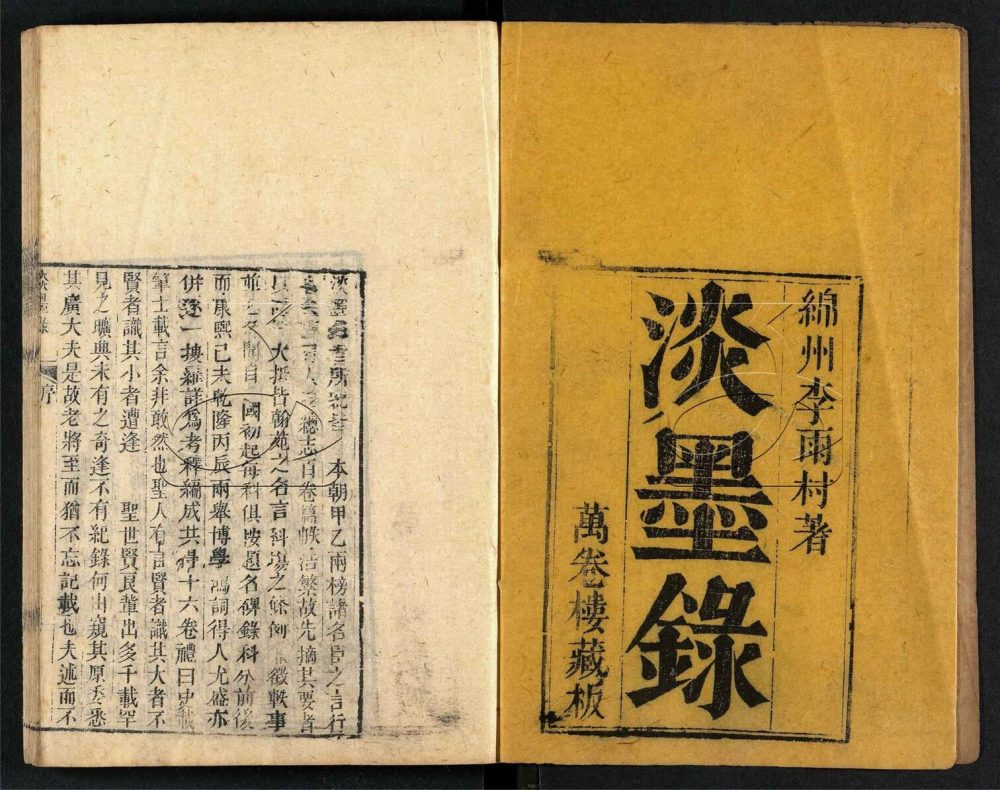 綿州李雨村著
淡墨錄
萬卷樓藏板
淡墨 本朝甲乙兩榜諸名臣之言行
總志百卷篇帙浩繁故先摘其要者
大抵皆翰苑之名言科塲之條例 徵軼事
並 國初起每科俱按題名碑錄科分前後
而康熙己未乾隆丙辰兩舉博學鴻詞得人尤盛亦
併逐一搜羅詳爲考釋編成共得十六卷禮曰史載
筆士載言余非敢然也聖人有言賢者識其大者不
賢者識其小者遭逢 聖世賢良輩出多千載罕
見之曠典未有之奇逢不有紀錄何由窺其原委悉
其廣大夫是故老將至而猶不忘記載也夫述而不
淡墨錄 序